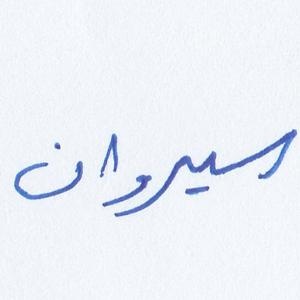 اسیروان